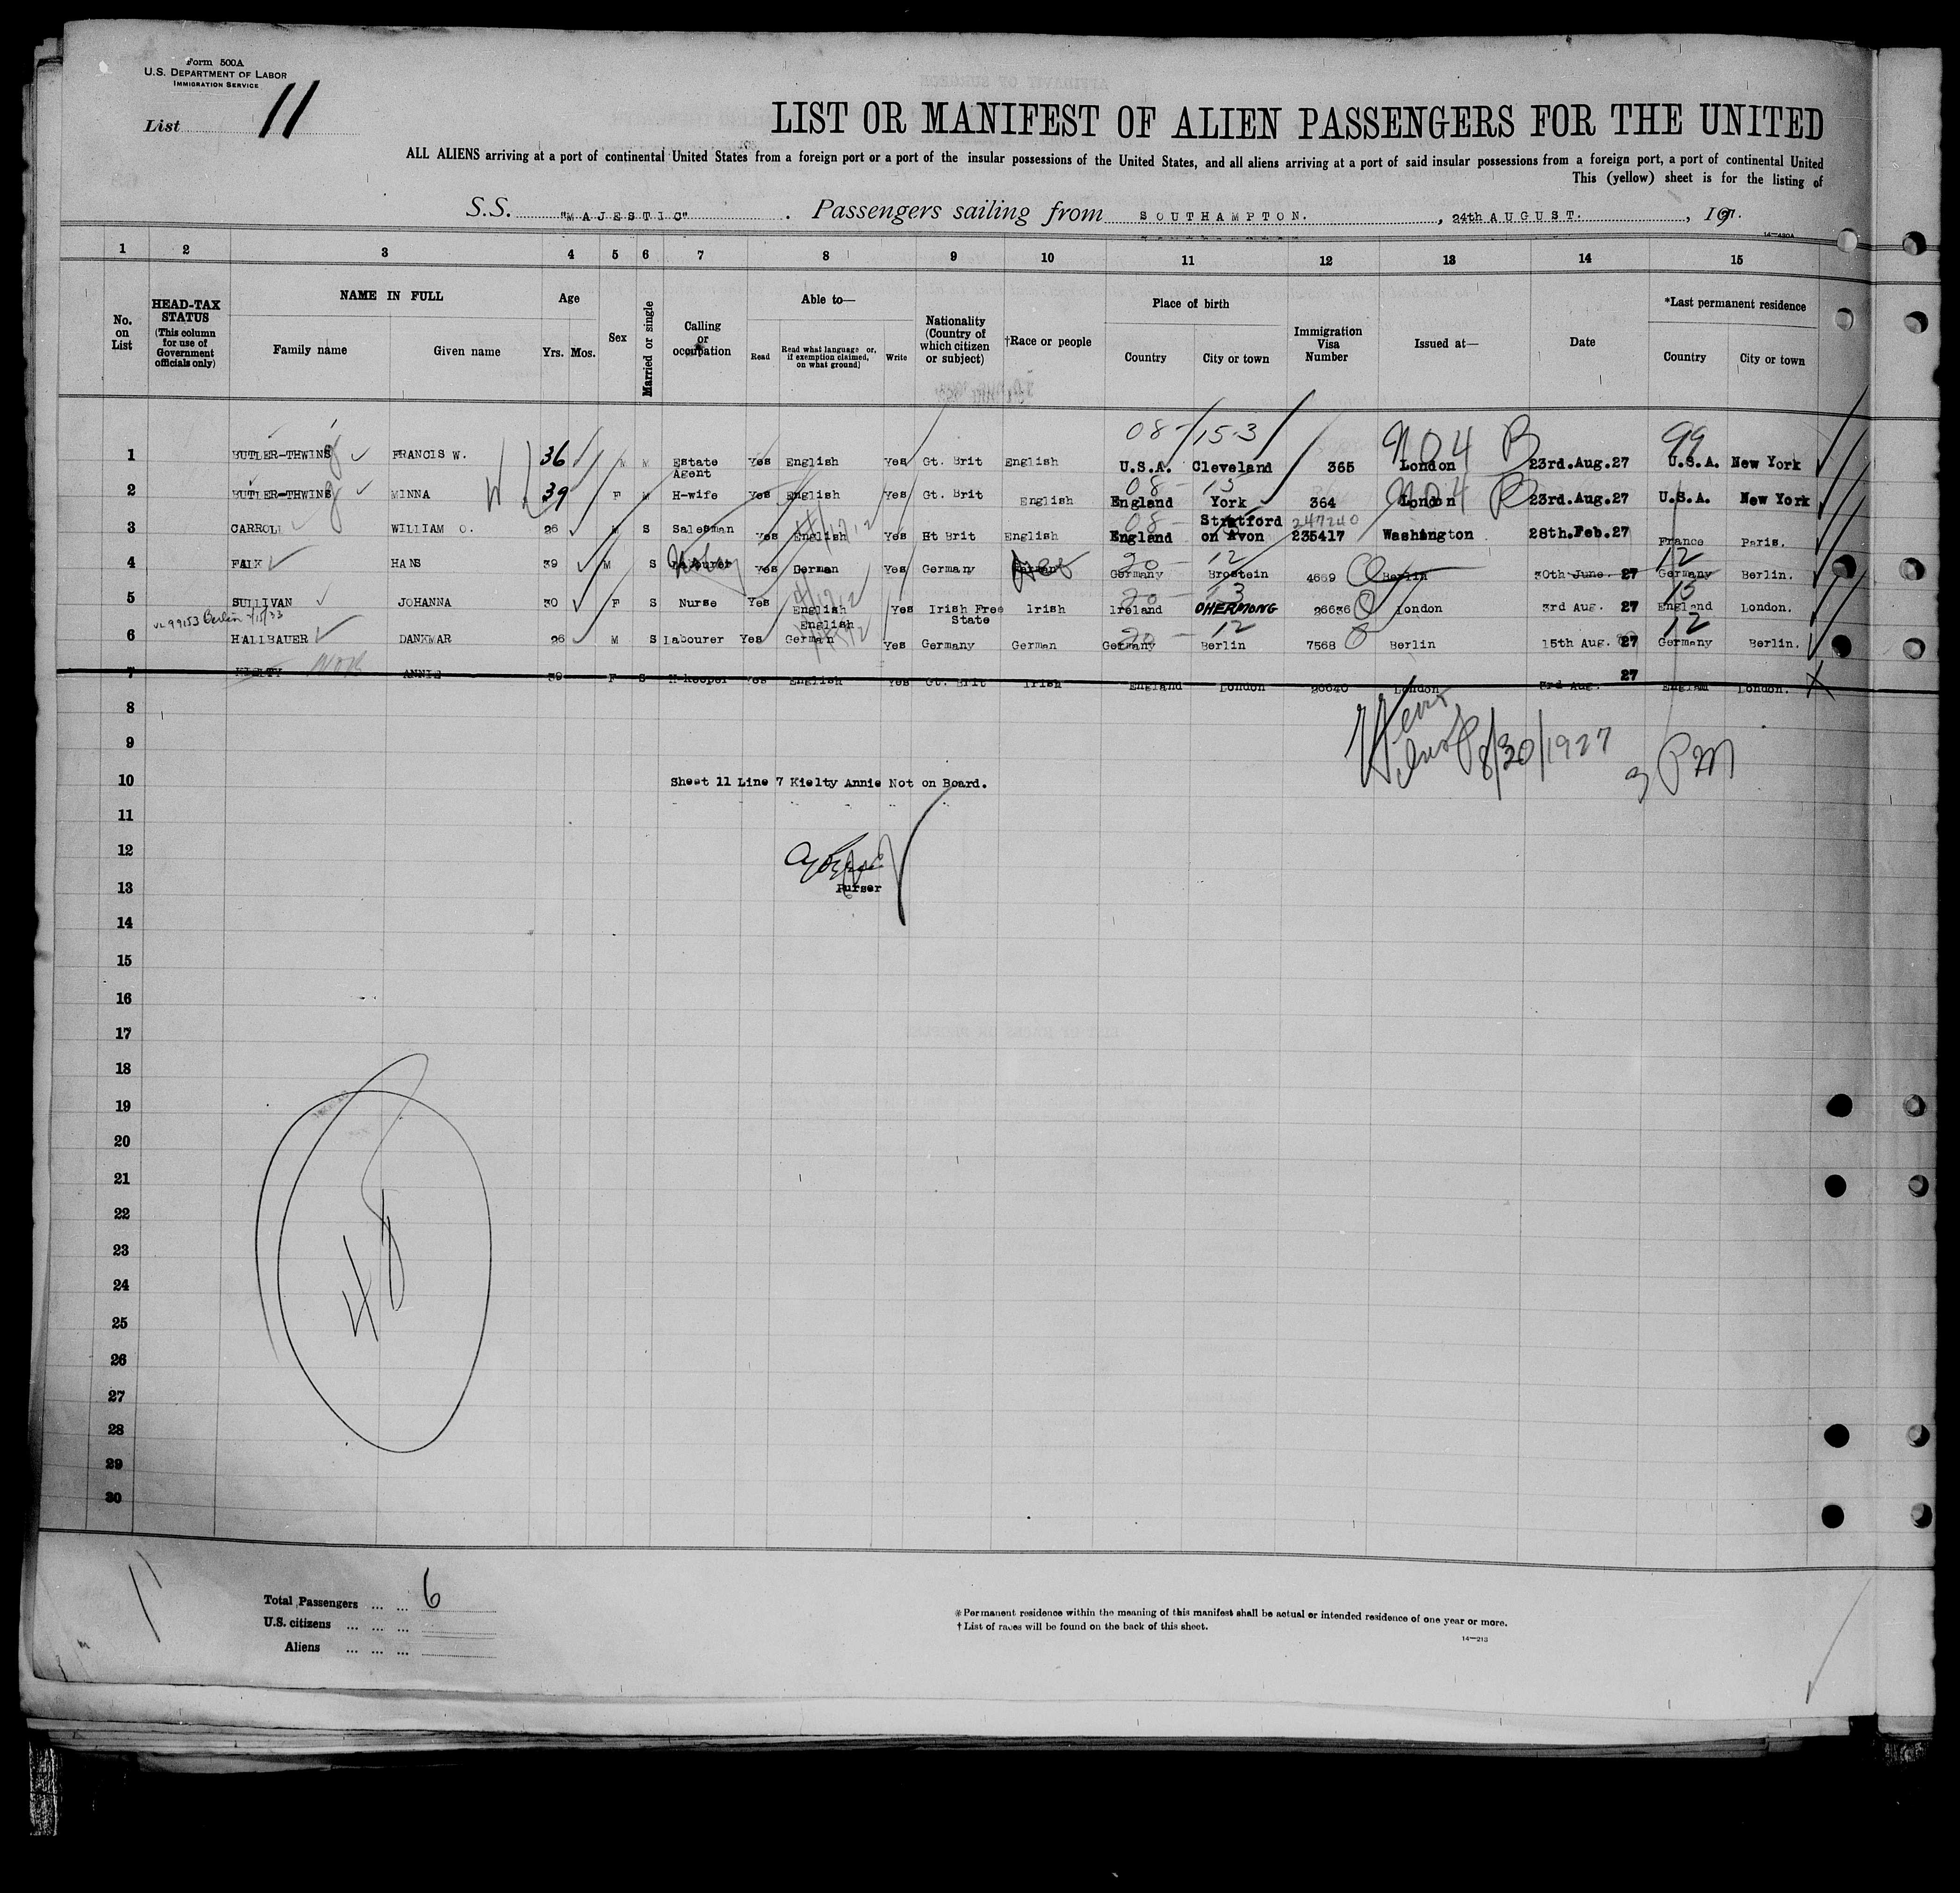 Form 500A
U.S. DEPARTMENT OF LABOR
IMMIGRATION SERVICE
List 11
LIST OR MANIFEST OF ALIEN PASSENGERS FOR THE UNITED
ALL ALIENS arriving at a port of continental United States from a foreign port or a port of the insular possessions of the United States, and all aliens arriving at a port of said insular possessions from a foreign port, a port of continental United
This (yellow) sheet is for the listing of
S.S. "MAJESTIC". Passengers sailing from SOUTHAMPTON. , 24th AUGUST. , 19
14-430A
1 2 3 4 5 6 7 8 9 10 11 12 13 14 15
No. on List
HEAD-TAX STATUS (This column for use of Government officials only)
NAME IN FULL
Family name Given name
Age
Yrs. Mos.
Sex
Married or single
Calling or occupation
Able to—
Read Read what language or, if exemption claimed, on what ground] Write
Nationality (Country of which citizen or subject)
†Race or people
Place of birth
Country City or town
Immigration Visa Number
Issued at—
Date
*Last permanent residence
Country City or town
08-/15-3 NO4 B 99
1 BUTLER-THWING FRANCIS W. 36 M M Estate Agent Yes English Yes Gt. Brit English U.S.A. Cleveland 365 London 23rd.Aug.27 U.S.A. New York
08- 13 NO4 B
2 BUTLER-THWING MINNA 39 F M H-wife Yes English Yes Gt. Brit English England York 364 London 23rd.Aug.27 U.S.A. New York
08- 247240
3 CARROLL WILLIAM O. 26 M S Salesman Yes English Yes Ht Brit English England Stratford on Avon 235417 Washington 28th.Feb.27 France Paris.
20- 12 12
4 FALK HANS 39 M S Labourer Yes German Yes Germany German Germany Brostein 4669 Berlin 30th June. 27 Germany Berlin.
20- 13 13
5 SULLIVAN JOHANNA 30 F S Nurse Yes English Yes Irish Free State Irish Ireland OHERMONG 26636 London 3rd Aug. 27 England London.
20- 12 12
6 HALLBAUER DANKMAR 26 M S Labourer Yes English German Yes Germany German Germany Berlin 7568 Berlin 15th Aug. 27 Germany Berlin.
7 KIELTY NOB ANNIE 39 F S H-keeper Yes English Yes Gt. Brit Irish England London 26640 London 3rd Aug. 27 England London. X
8
9
8/30/1927 3 PM
10 Sheet 11 Line 7 Kielty Annie Not on Board.
11
12
13 Purser
14
15
16
17
18
19
20
21
22
23
24
25
26
27
28
29
30
48
Total Passengers ... ... 6
U.S. citizens ... ... ...
Aliens ... ... ...
*Permanent residence within the meaning of this manifest shall be actual or intended residence of one year or more.
†List of races will be found on the back of this sheet.
14—213